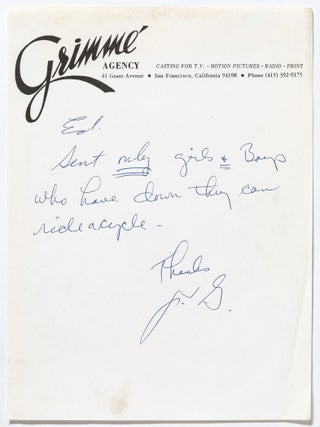 Grimmé
AGENCY
CASTING FOR T.V. - MOTION PICTURES - RADIO - PRINT
41 Grant Avenue • San Francisco, California 94108 • Phone (415) 392-9175
Ed.
Sent only girls & Boys
who have down they can
ride a cycle -
Thanks
G.